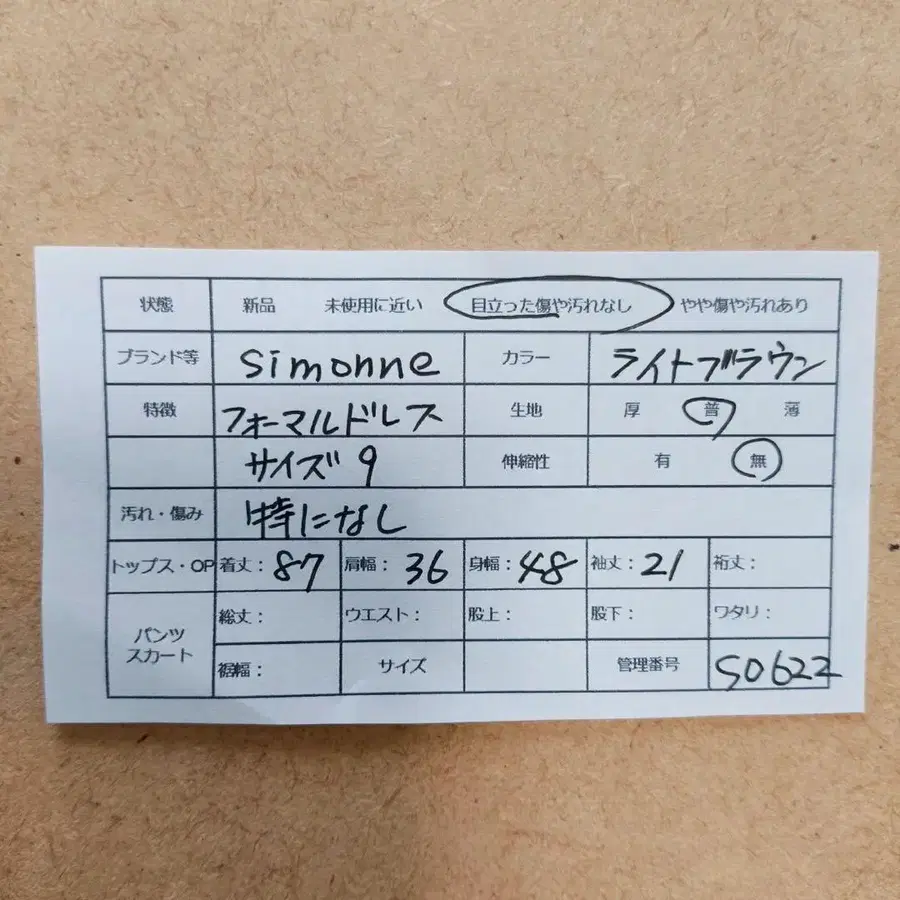 状態 新品 未使用に近い 目立った傷や汚れなし やや傷や汚れあり
ブランド等 simonne カラー ライトブラウン
特徴 フォーマルドレス 生地 厚 普 薄
サイズ9 伸縮性 有 無
汚れ・傷み 特になし
トップス・OP 着丈：87 肩幅：36 身幅：48 袖丈：21 裄丈：
パンツ スカート 総丈： ウエスト： 股上： 股下： ワタリ：
裾幅： サイズ 管理番号 S0622